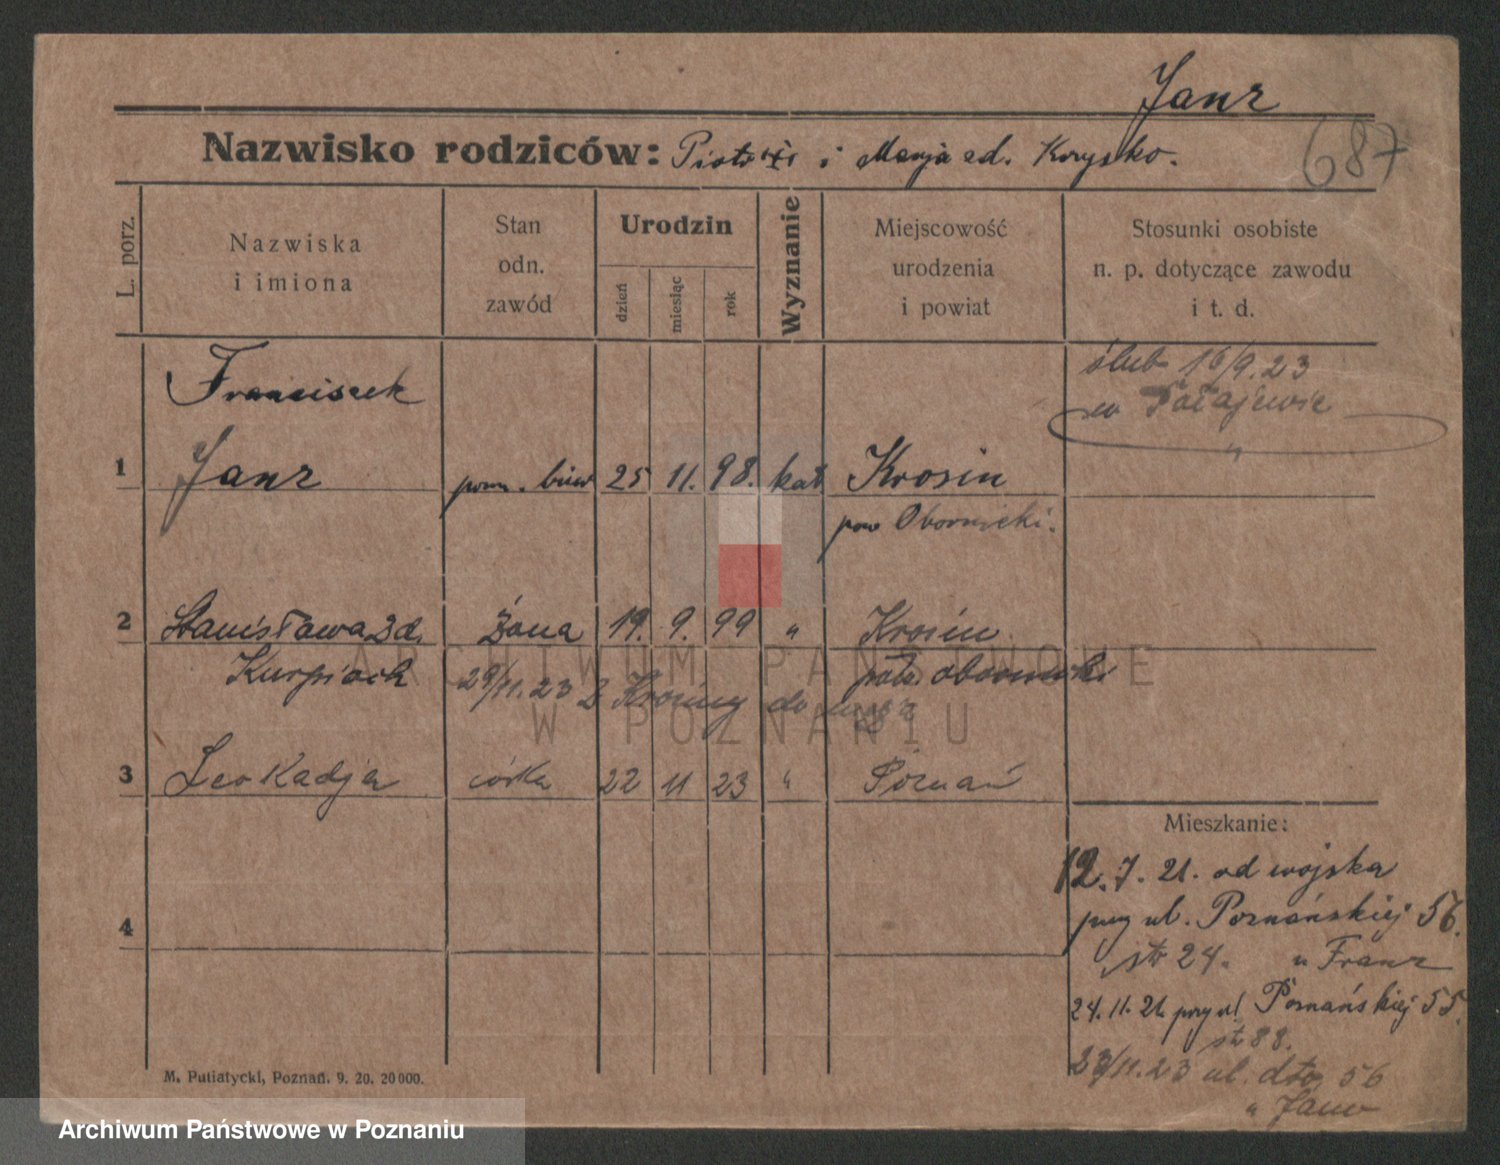 Janz
Nazwisko rodziców: Piotr i Marja zd. Korysko.
687
L. porz.
Nazwiska
i imiona
Stan
odn.
zawód
Urodzin
dzień
miesiąc
rok
Wyznanie
Miejscowość
urodzenia
i powiat
Stosunki osobiste
n. p. dotyczące zawodu
i t. d.
ślub 16/9.23
w Połajewie
Franciszek
1 Janz pom. biur 25 11. 98. kat Krosin
pow Obornicki.
2 Stanisława zd. Żona 19. 9. 99 " Krosin
Kurpisch pow. obornicki
29/11.23 z Krosiny do
3 Leokadja córka 22 11 23 " Poznań
4
Mieszkanie:
12.7.21. od wojska
przy ul. Poznańskiej 56.
str 24. u Franz
24.11.21. przy ul. Poznańskiej 55.
str 88.
29/11.23 ul. dto 56
" Janz
M. Putiatycki, Poznań. 9. 20. 20 000.
ARCHIWUM PAŃSTWOWE
W POZNANIU
Archiwum Państwowe w Poznaniu